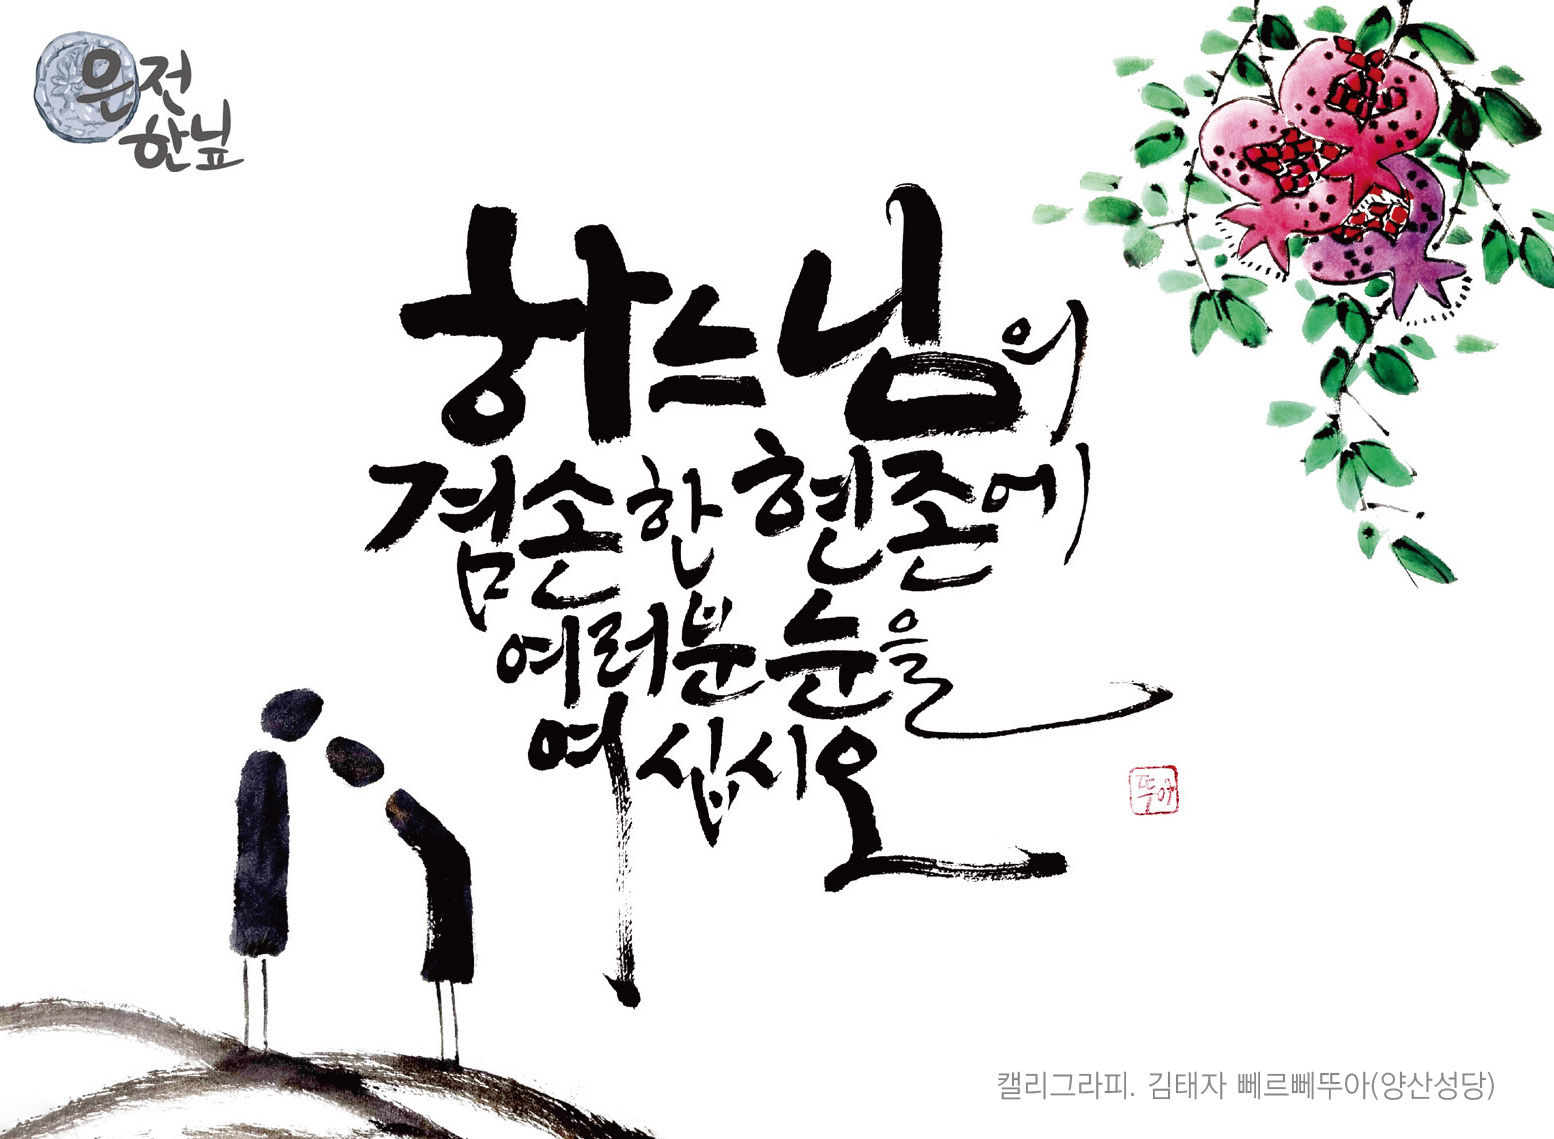 은전
한닢
하느님의
겸손한 현존에
여러분 눈을
여십시오
뚜아
캘리그라피. 김태자 뻬르뻬뚜아(양산성당)